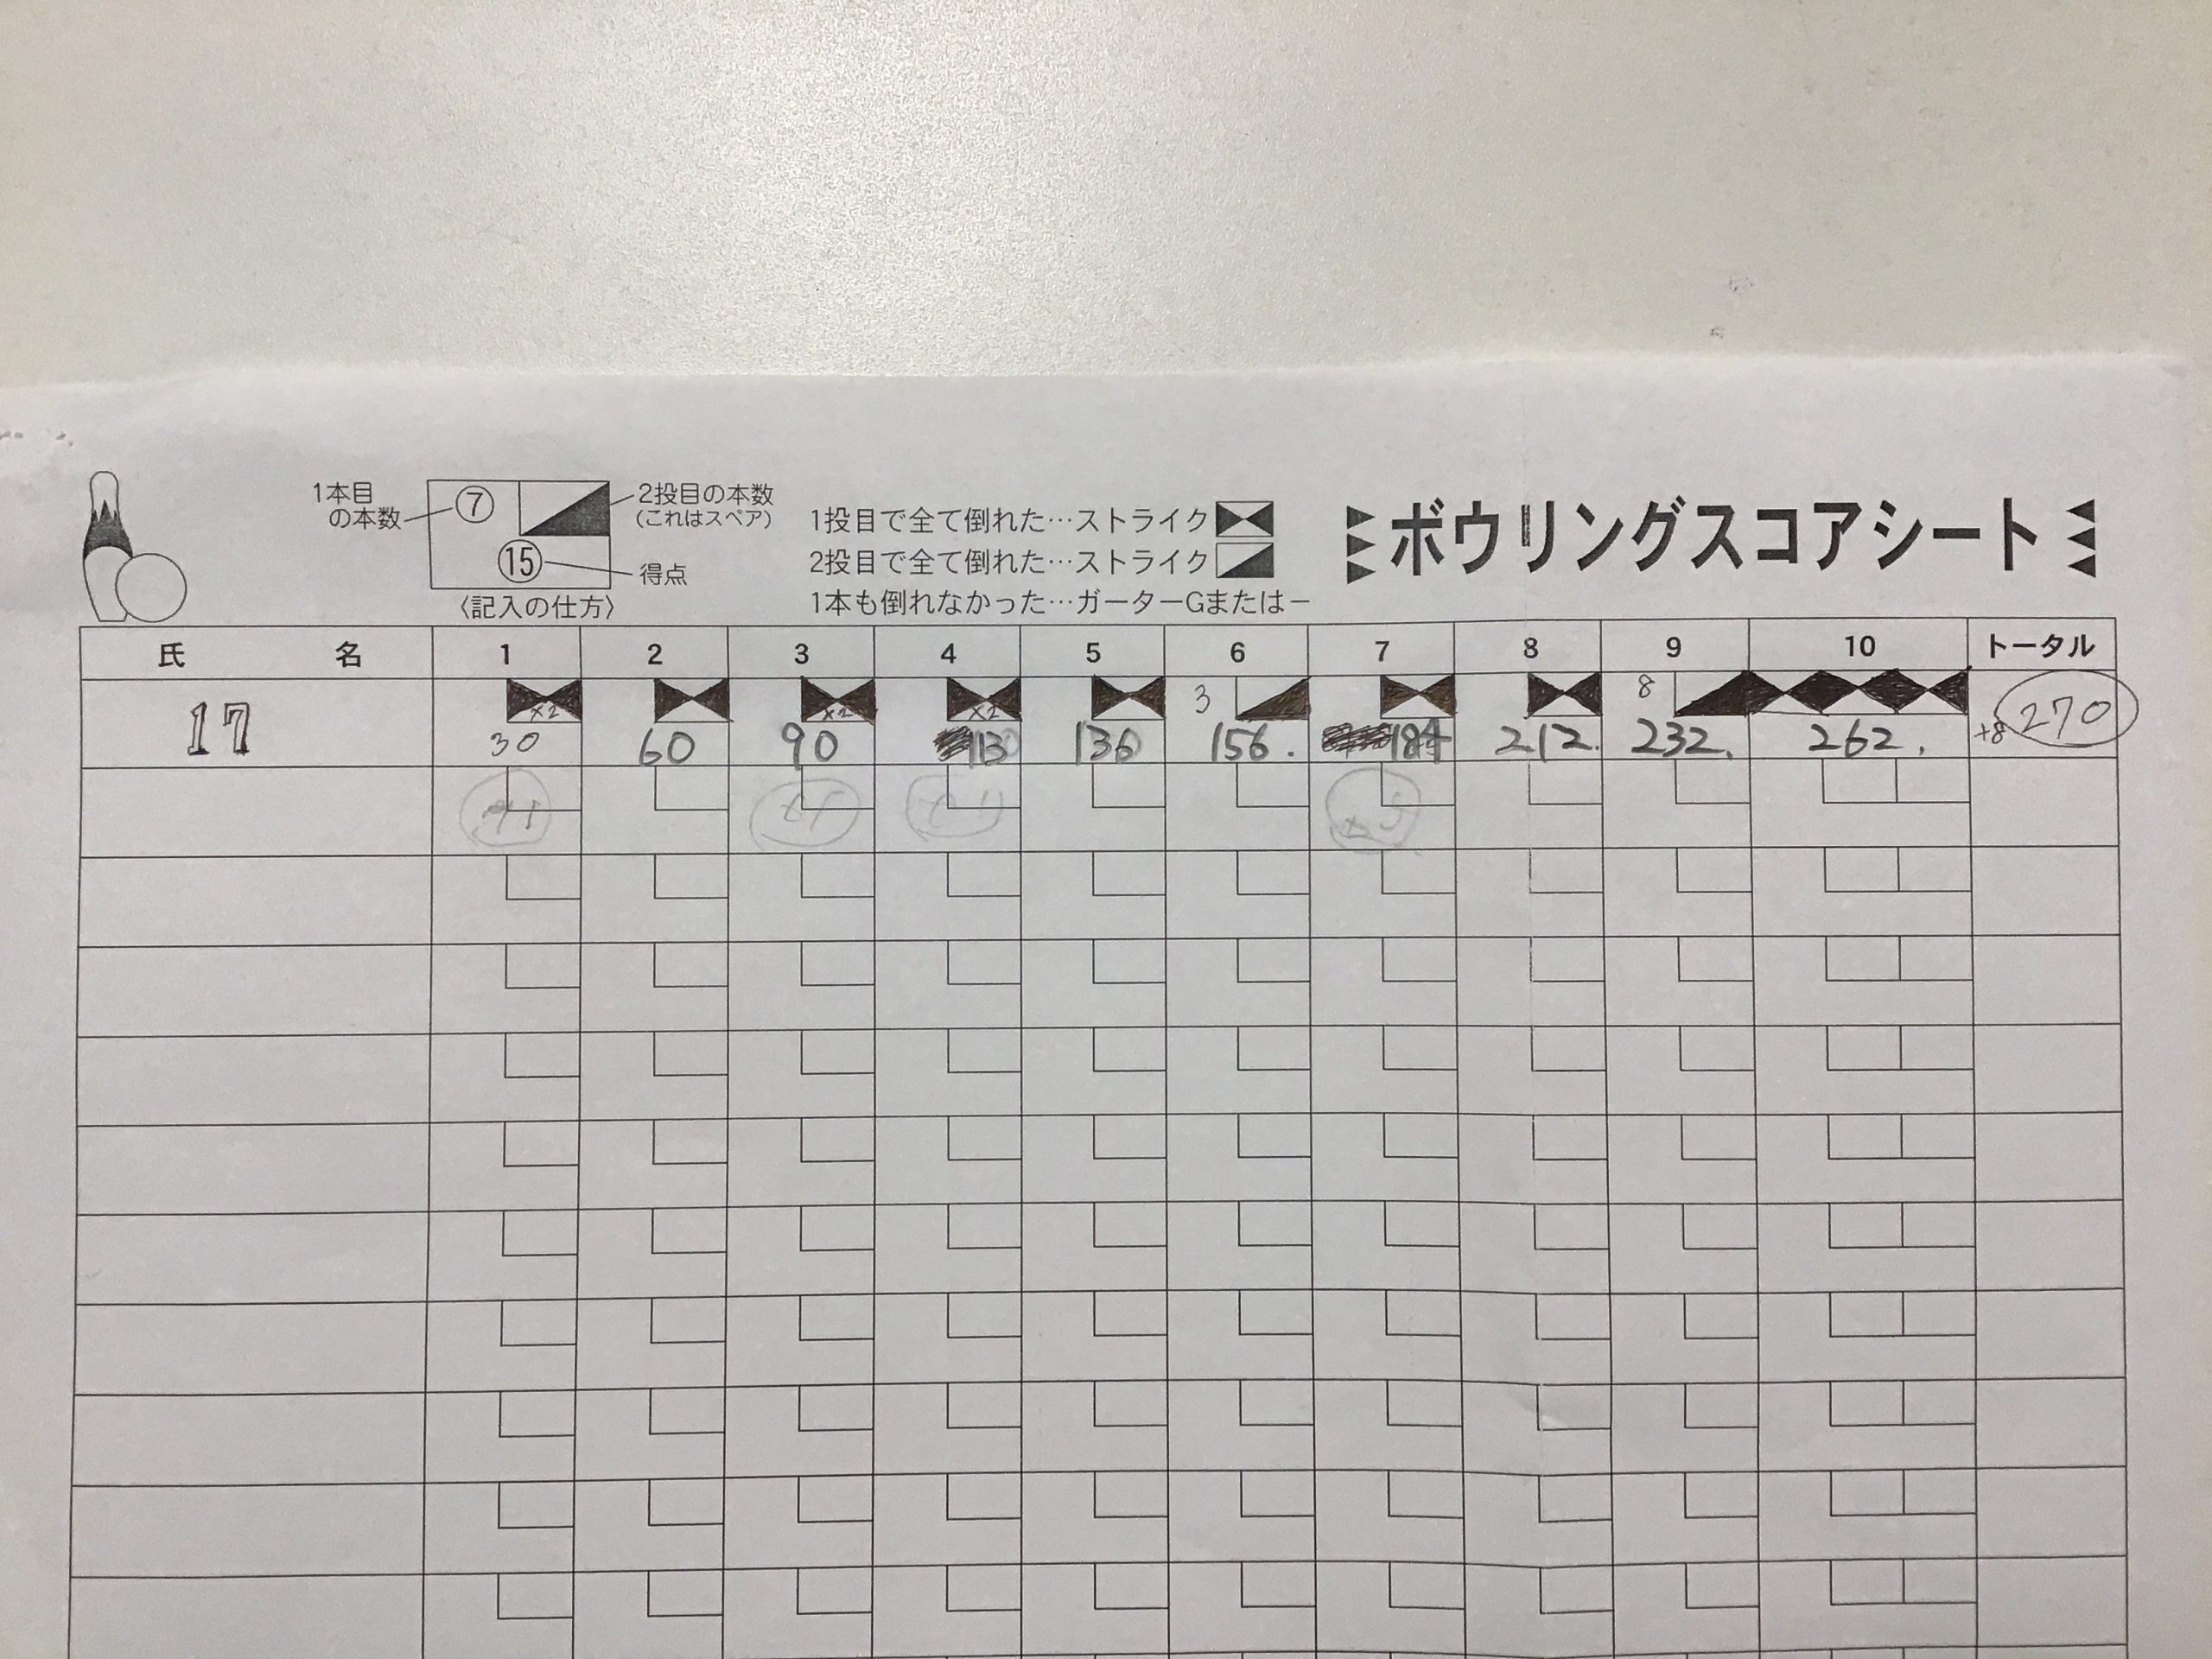 1本目
の本数
⑦
2投目の本数
(これはスペア)
⑮
得点
〈記入の仕方〉
1投目で全て倒れた…ストライク
2投目で全て倒れた…ストライク
1本も倒れなかった…ガーターGまたは−
ボウリングスコアシート
氏 名 1 2 3 4 5 6 7 8 9 10 トータル
×2 ×2 ×2 3 8
17 30 60 90 113 136 156. 184 212. 232. 262. +8 270